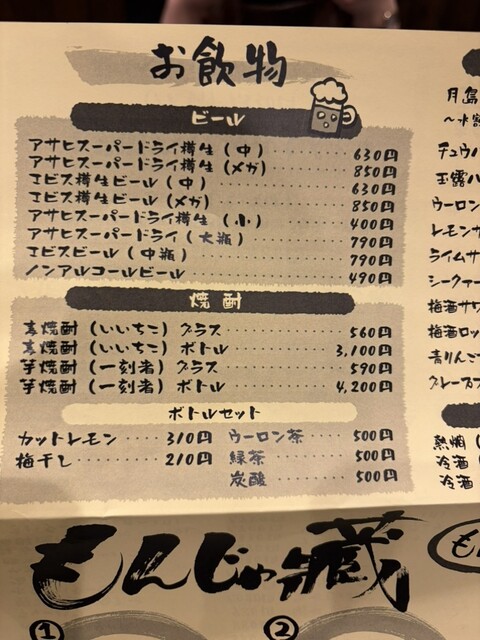 お飲物
ビール
アサヒスーパードライ樽生（中） 630円
アサヒスーパードライ樽生（メガ） 850円
エビス樽生ビール（中） 630円
エビス樽生ビール（メガ） 850円
アサヒスーパードライ樽生（小） 400円
アサヒスーパードライ（大瓶） 790円
エビスビール（中瓶） 790円
ノンアルコールビール 490円
焼酎
麦焼酎（いいちこ）グラス 560円
麦焼酎（いいちこ）ボトル 3,100円
芋焼酎（一刻者）グラス 590円
芋焼酎（一刻者）ボトル 4,200円
ボトルセット
カットレモン 310円
梅干し 210円
ウーロン茶 500円
緑茶 500円
炭酸 500円
月島
チュウハ
玉露ハ
ウーロン
レモンサ
ライムサ
シークァー
梅酒サワ
梅酒ロッ
青りんご
グレープフ
熱燗（
冷酒（
冷酒（
もんじゃ蔵
も
1
2